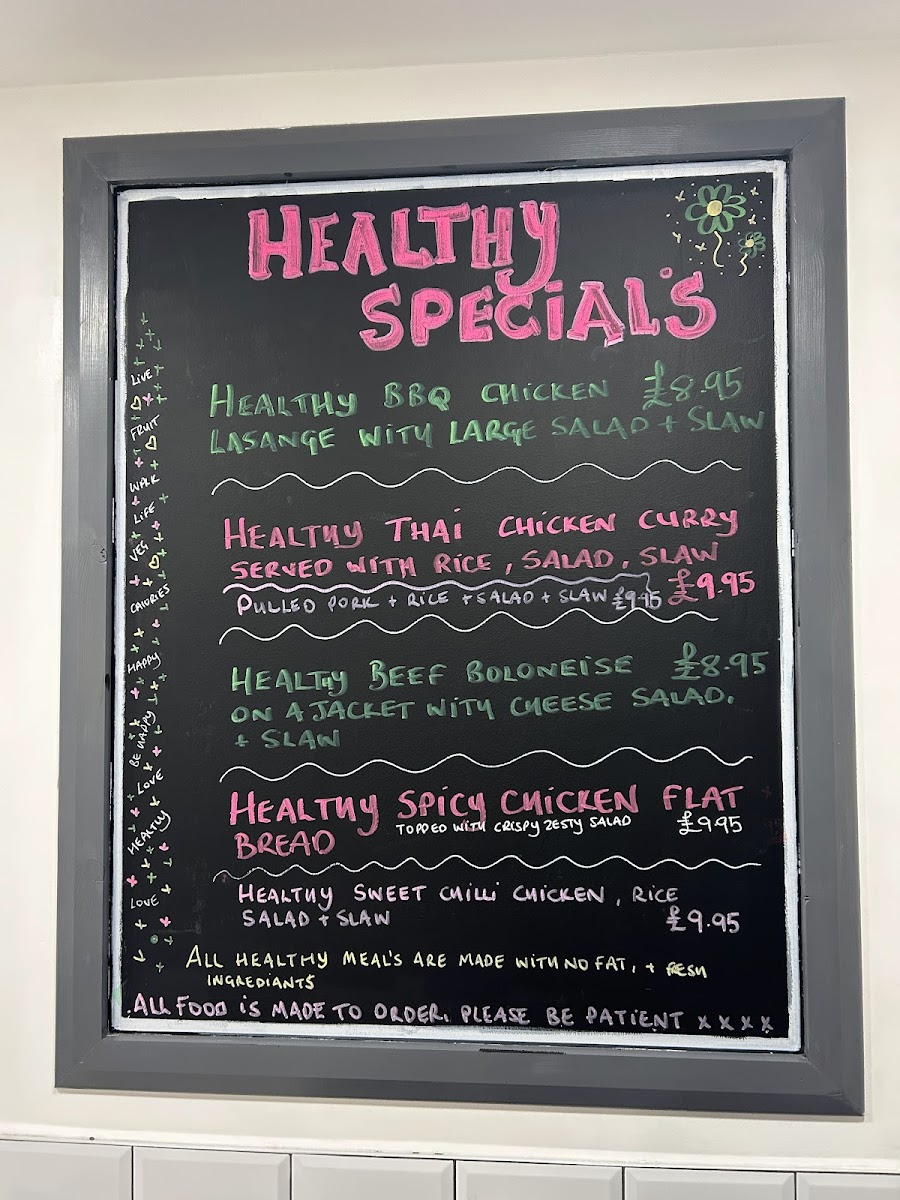 HEALTHY
SPECIAL'S
HEALTHY BBQ CHICKEN £8.95
LASANGE WITH LARGE SALAD + SLAW
HEALTHY THAI CHICKEN CURRY
SERVED WITH RICE, SALAD, SLAW
£9.95
PULLED PORK + RICE + SALAD + SLAW £9.95
HEALTHY BEEF BOLONEISE £8.95
ON A JACKET WITH CHEESE SALAD.
+ SLAW
HEALTHY SPICY CHICKEN FLAT
BREAD
TOPPED WITH CRISPY ZESTY SALAD £9.95
HEALTHY SWEET CHILLI CHICKEN, RICE
SALAD + SLAW £9.95
ALL HEALTHY MEAL'S ARE MADE WITH NO FAT, + FRESH
INGREDIANTS
ALL FOOD IS MADE TO ORDER. PLEASE BE PATIENT X X X X
LIVE
FRUIT
WALK
LIFE
VEG
CALORIES
HAPPY
BE HAPPY
LOVE
HEALTHY
LOVE